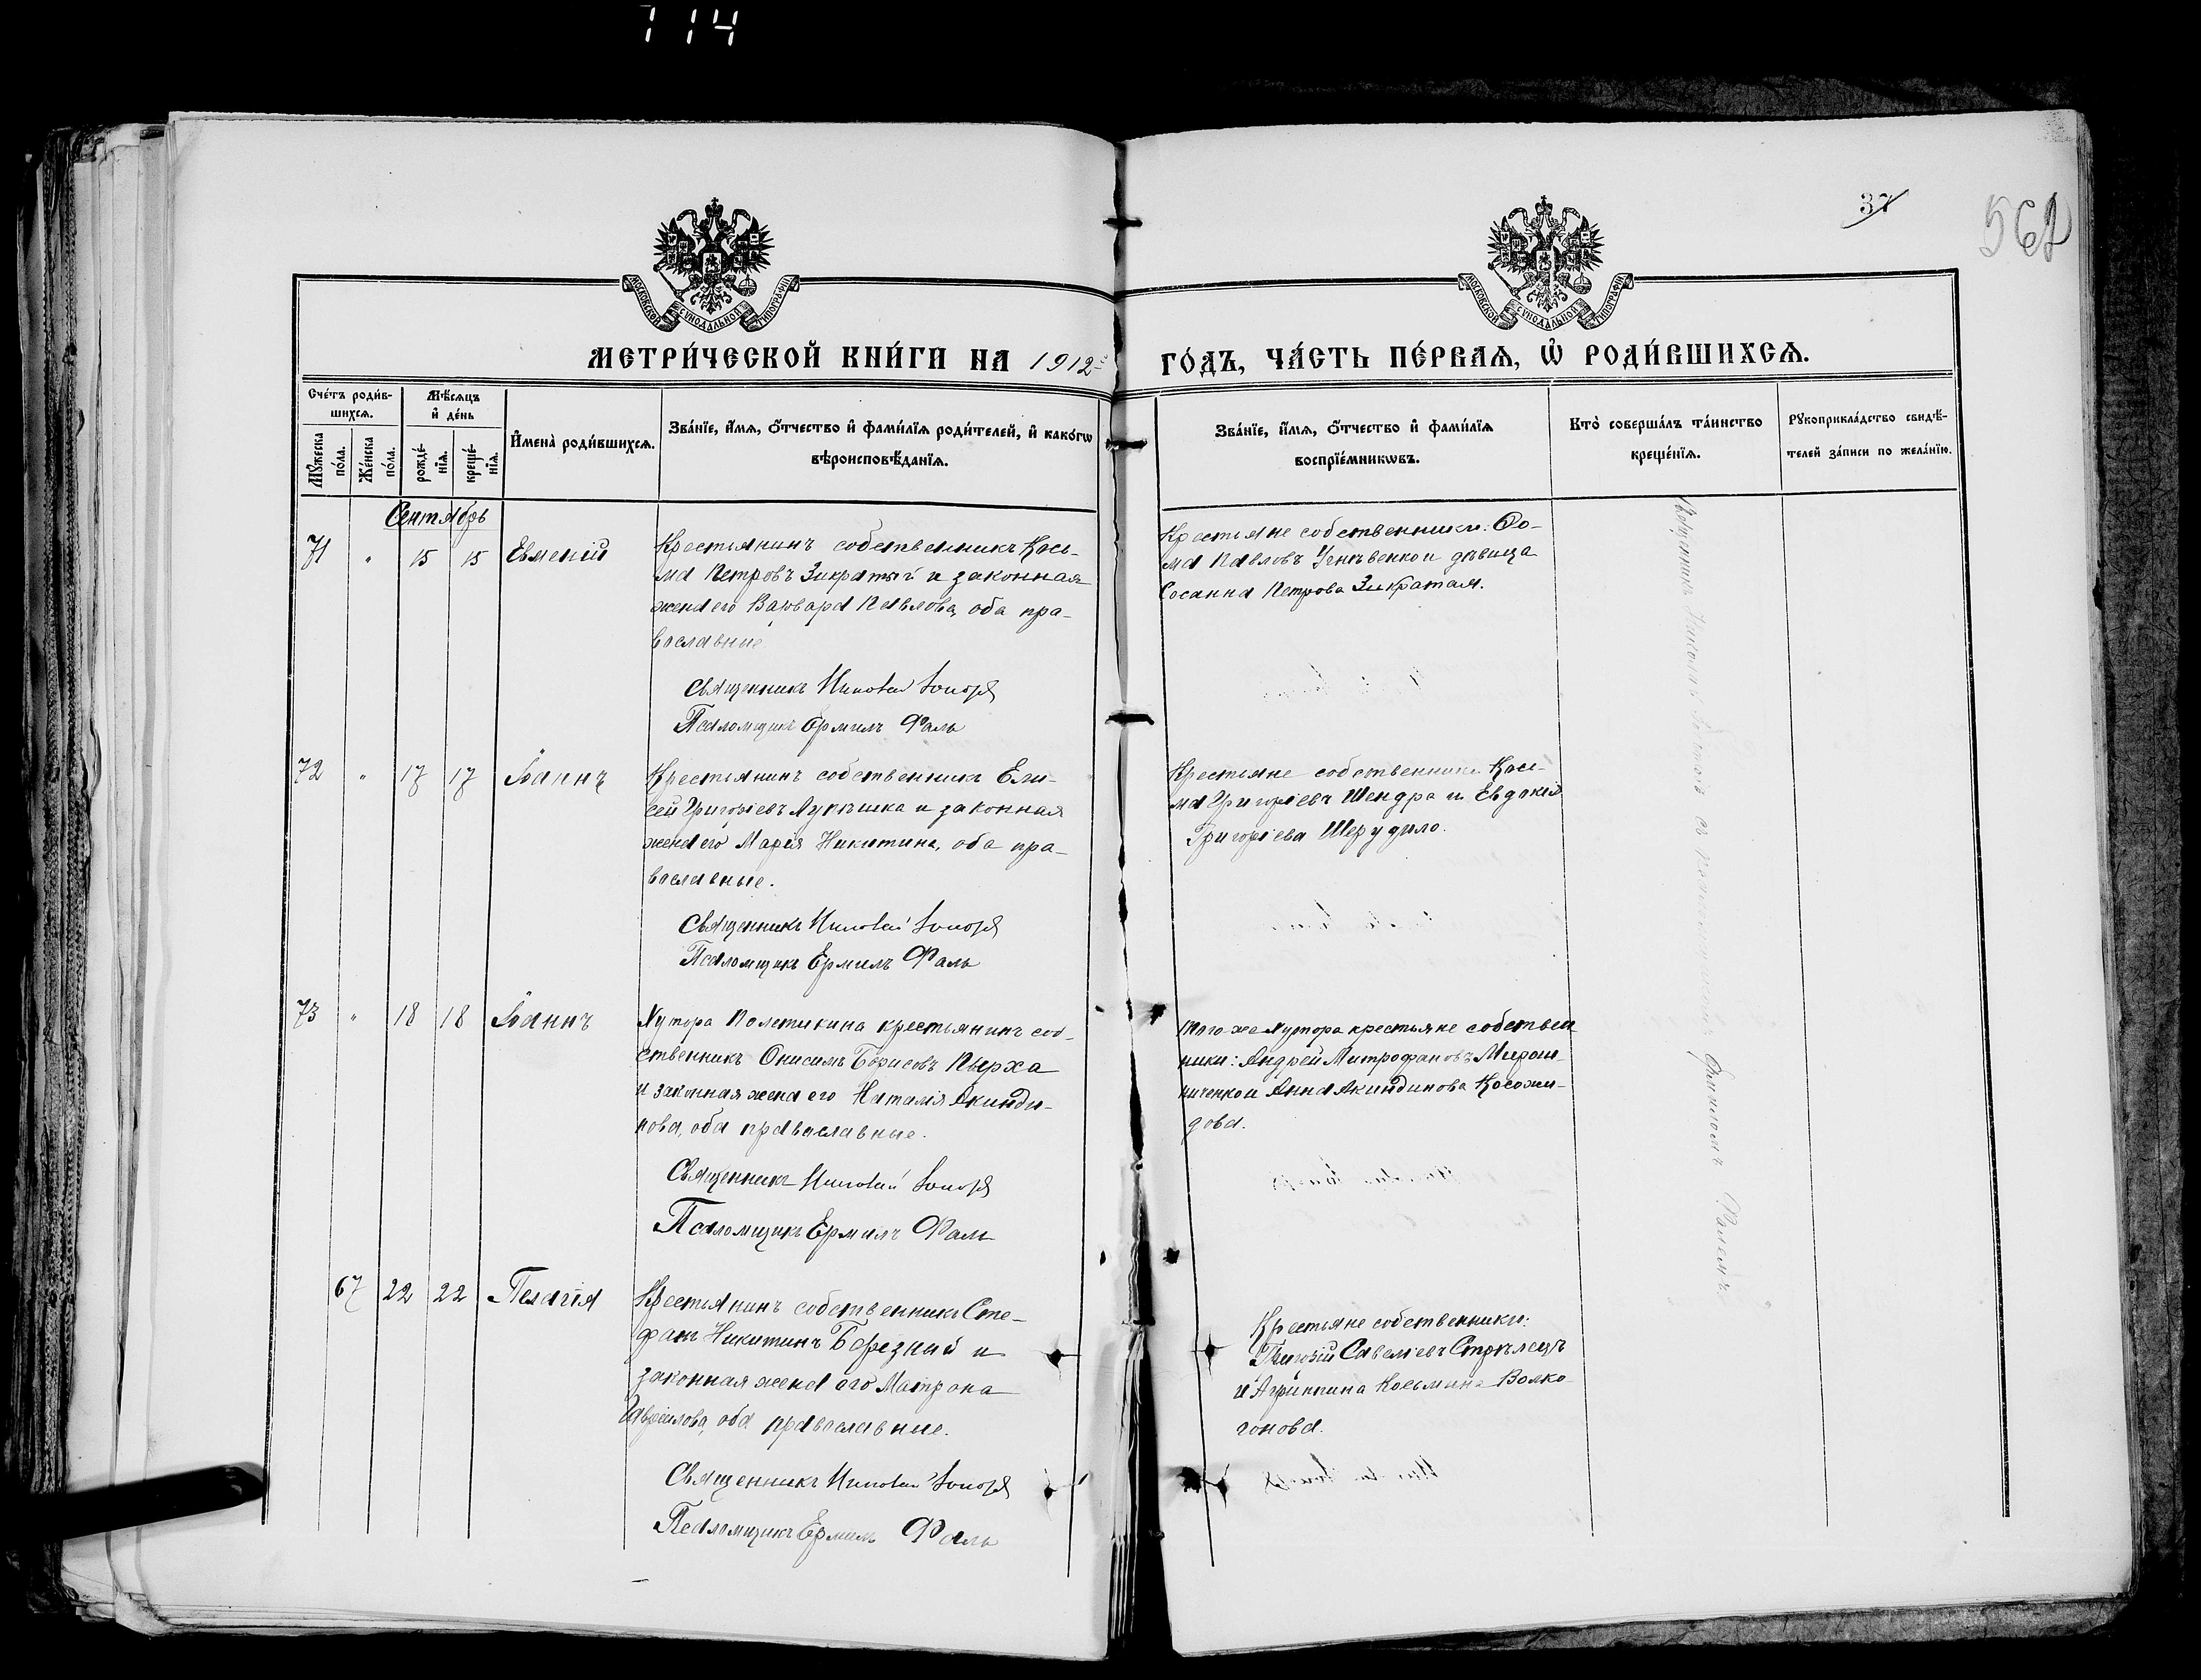 114
37
562
МОСКОВСКОЙ СѴНОДАЛЬНОЙ ТИПОГРАФІИ
МОСКОВСКОЙ СѴНОДАЛЬНОЙ ТИПОГРАФІИ
МЕТРИ́ЧЕСКОЙ КНИ́ГИ НА 1912 ГО́ДЪ, ЧА́СТЬ ПЕ́РВАѦ, Ѡ҆ РОДИ́ВШИХСѦ.
Сче́тъ роди́в-
шихсѧ.
Мѣ́сѧцъ
и҆ де́нь
Мꙋ́жеска
по́ла.
Же́нска
по́ла.
рожде́-
нїѧ.
креще́-
нїѧ.
И҆мена̀ роди́вшихсѧ.
Зва́нїе, и҆́мѧ, ѻ҆́тчество и҆ фами́лїѧ роди́телей, и҆ како́гѡ
вѣроисповѣ́данїѧ.
Зва́нїе, и҆́мѧ, ѻ҆́тчество и҆ фами́лїѧ
воспрїе́мникѡвъ.
Кто̀ соверша́лъ та́инство
креще́нїѧ.
Рꙋкоприкла́дство свидѣ́-
телей за́писи по жела́нїю.
Сентябрь
71 " 15 15 Евмений
Крестьянинъ собственникъ Кось-
ма Петровъ Зикратый и законная
жена его Варвара Павлова, оба пра-
вославные
Священникъ
Псаломщикъ Ермилъ Фаль
Крестьяне собственники: Ѳо-
ма Павловъ и дѣвица
Сосанна Петрова Зикратая.
72 " 17 17 Іоаннъ
Крестьянинъ собственникъ Ели-
сей Григоріевъ и законная
жена его Марія Никитина, оба пра-
вославные.
Священникъ
Псаломщикъ Ермилъ Фаль
Крестьяне собственники Кось-
ма Григоріевъ Шендра и Евдокія
Григоріева Шерудило.
73 " 18 18 Іоаннъ
Хутора Полетикина крестьянинъ соб-
ственникъ Онисимъ Борисовъ Пырха
и законная жена его Наталія Акинди-
нова, оба православные.
Священникъ
Псаломщикъ Ермилъ Фаль
того-же хутора крестьяне собствен
ники: Андрей Митрофановъ Мирош-
ниченко и Анна Акиндинова Косожи-
дова.
67 22 22 Пелагія
Крестьянинъ собственникъ Сте-
фанъ Никитинъ Березный и
законная жена его Матрона
Гавріилова, оба православные.
Священникъ
Псаломщикъ Ермилъ Фаль
Крестьяне собственники:
Григорій Савеліевъ Стрѣлецъ
и Агриппина Косьмина Волко-
гонова.